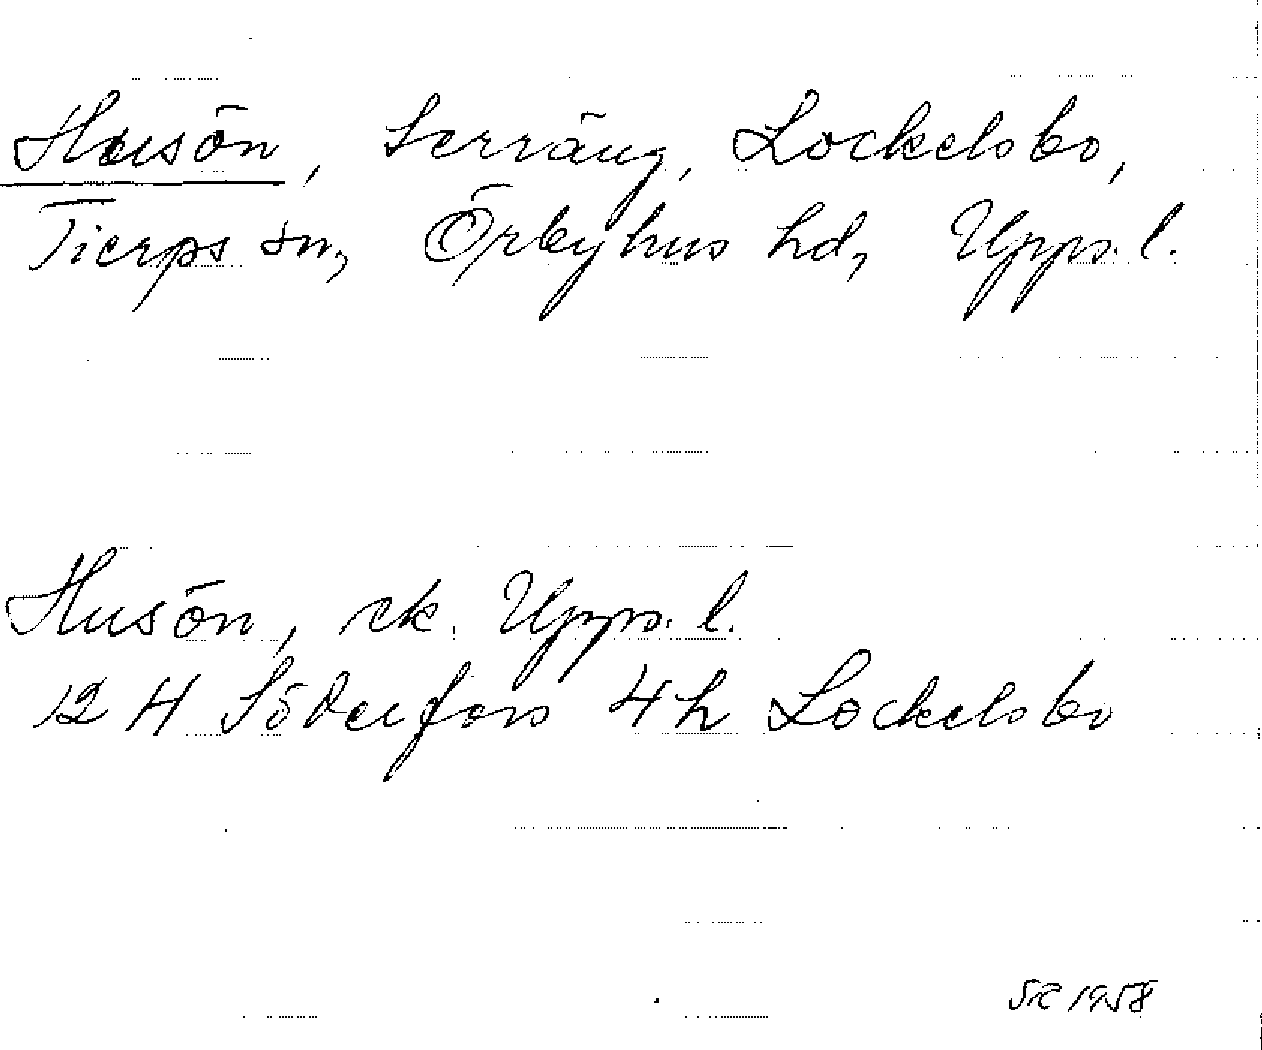 Husön, terräng, Lockelsbo,
Tierps sn, Örbyhus hd, Upps. l.
Husön, ek. Upps. l.
12 H Söderfors 4h Lockelsbo
1958